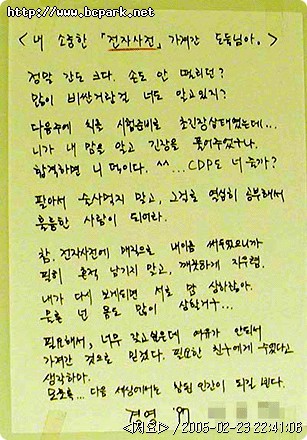 http://www.bcpark.net
< 내 소중한 「전자사전」 가져간 도둑님아. >
정말 간도 크다. 손도 안 떨리던?
많이 비싼거란건 너도 알고있지?
다음주에 치를 시험준비로 초긴장상태였는데...
니가 내 맘을 알고 긴장을 풀어주었구나.
합격하면 니 덕이다. ^^ ... CDP도 너 줄까?
팔아서 술사먹지 말고, 그걸로 열심히 공부해서
훌륭한 사람이 되어라.
참. 전자사전에 매직으로 내이름 써두었으니까
찍히 흔적 남기지 말고, 깨끗하게 지우렴.
내가 다시 보게되면 서로 맘 상하잖아.
물론 넌 몸도 많이 상할거구...
필요해서, 너무 갖고싶은데 여유가 안되서
가져간 것으로 믿겠다. 필요한 친구에게 주었다고
생각하마.
모쪼록... 다음 세상에서는 참된 인간이 되길 빈다.
경영 '97
◁여유▷ /2005-02-23 22:41:06